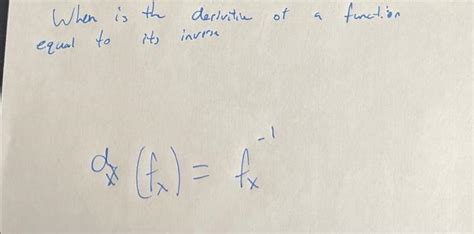 When is the derivitive of a function
equal to its inverse
dx (fx) = fx⁻¹